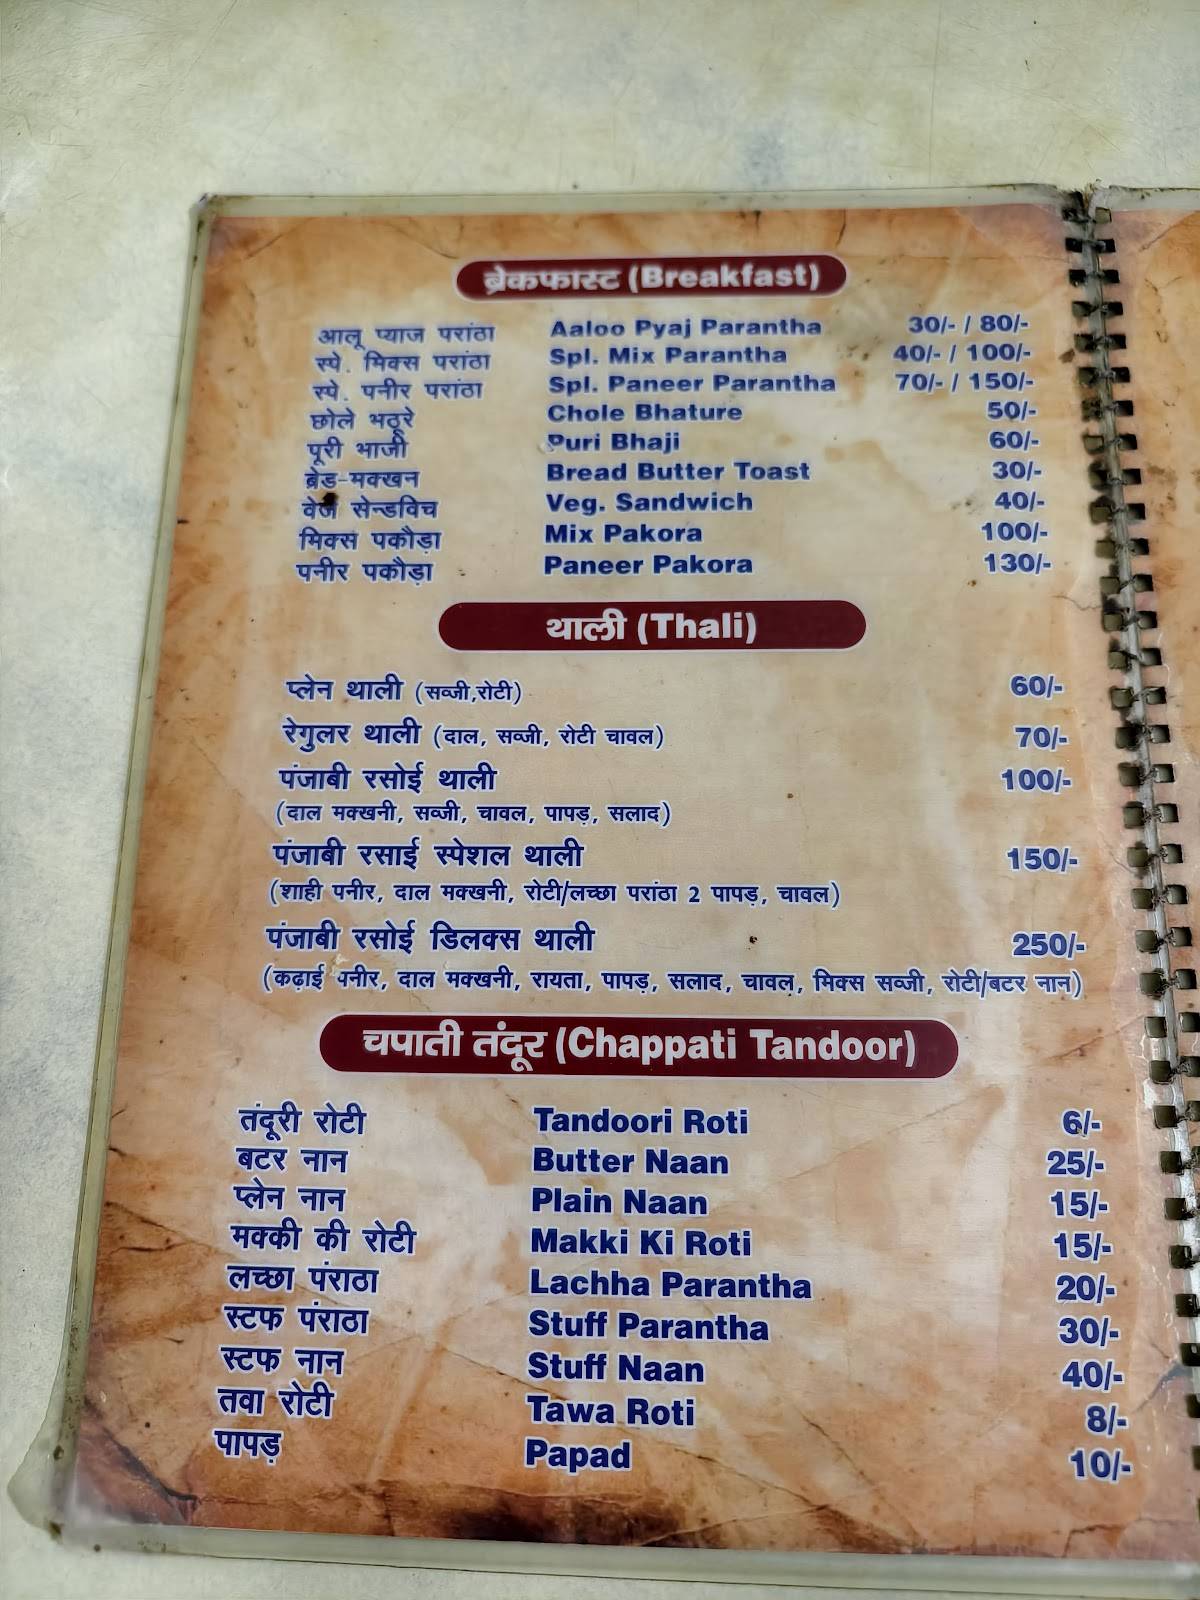 ब्रेकफास्ट (Breakfast)
आलू प्याज परांठा Aaloo Pyaj Parantha 30/- / 80/-
स्पे. मिक्स परांठा Spl. Mix Parantha 40/- / 100/-
स्पे. पनीर परांठा Spl. Paneer Parantha 70/- / 150/-
छोले भठूरे Chole Bhature 50/-
पूरी भाजी Puri Bhaji 60/-
ब्रेड-मक्खन Bread Butter Toast 30/-
वेज सेन्डविच Veg. Sandwich 40/-
मिक्स पकौड़ा Mix Pakora 100/-
पनीर पकौड़ा Paneer Pakora 130/-
थाली (Thali)
प्लेन थाली (सब्जी,रोटी) 60/-
रेगुलर थाली (दाल, सब्जी, रोटी चावल) 70/-
पंजाबी रसोई थाली 100/-
(दाल मक्खनी, सब्जी, चावल, पापड़, सलाद)
पंजाबी रसाई स्पेशल थाली 150/-
(शाही पनीर, दाल मक्खनी, रोटी/लच्छा परांठा 2 पापड़, चावल)
पंजाबी रसोई डिलक्स थाली 250/-
(कढ़ाई पनीर, दाल मक्खनी, रायता, पापड़, सलाद, चावल, मिक्स सब्जी, रोटी/बटर नान)
चपाती तंदूर (Chappati Tandoor)
तंदूरी रोटी Tandoori Roti 6/-
बटर नान Butter Naan 25/-
प्लेन नान Plain Naan 15/-
मक्की की रोटी Makki Ki Roti 15/-
लच्छा पंराठा Lachha Parantha 20/-
स्टफ पंराठा Stuff Parantha 30/-
स्टफ नान Stuff Naan 40/-
तवा रोटी Tawa Roti 8/-
पापड़ Papad 10/-